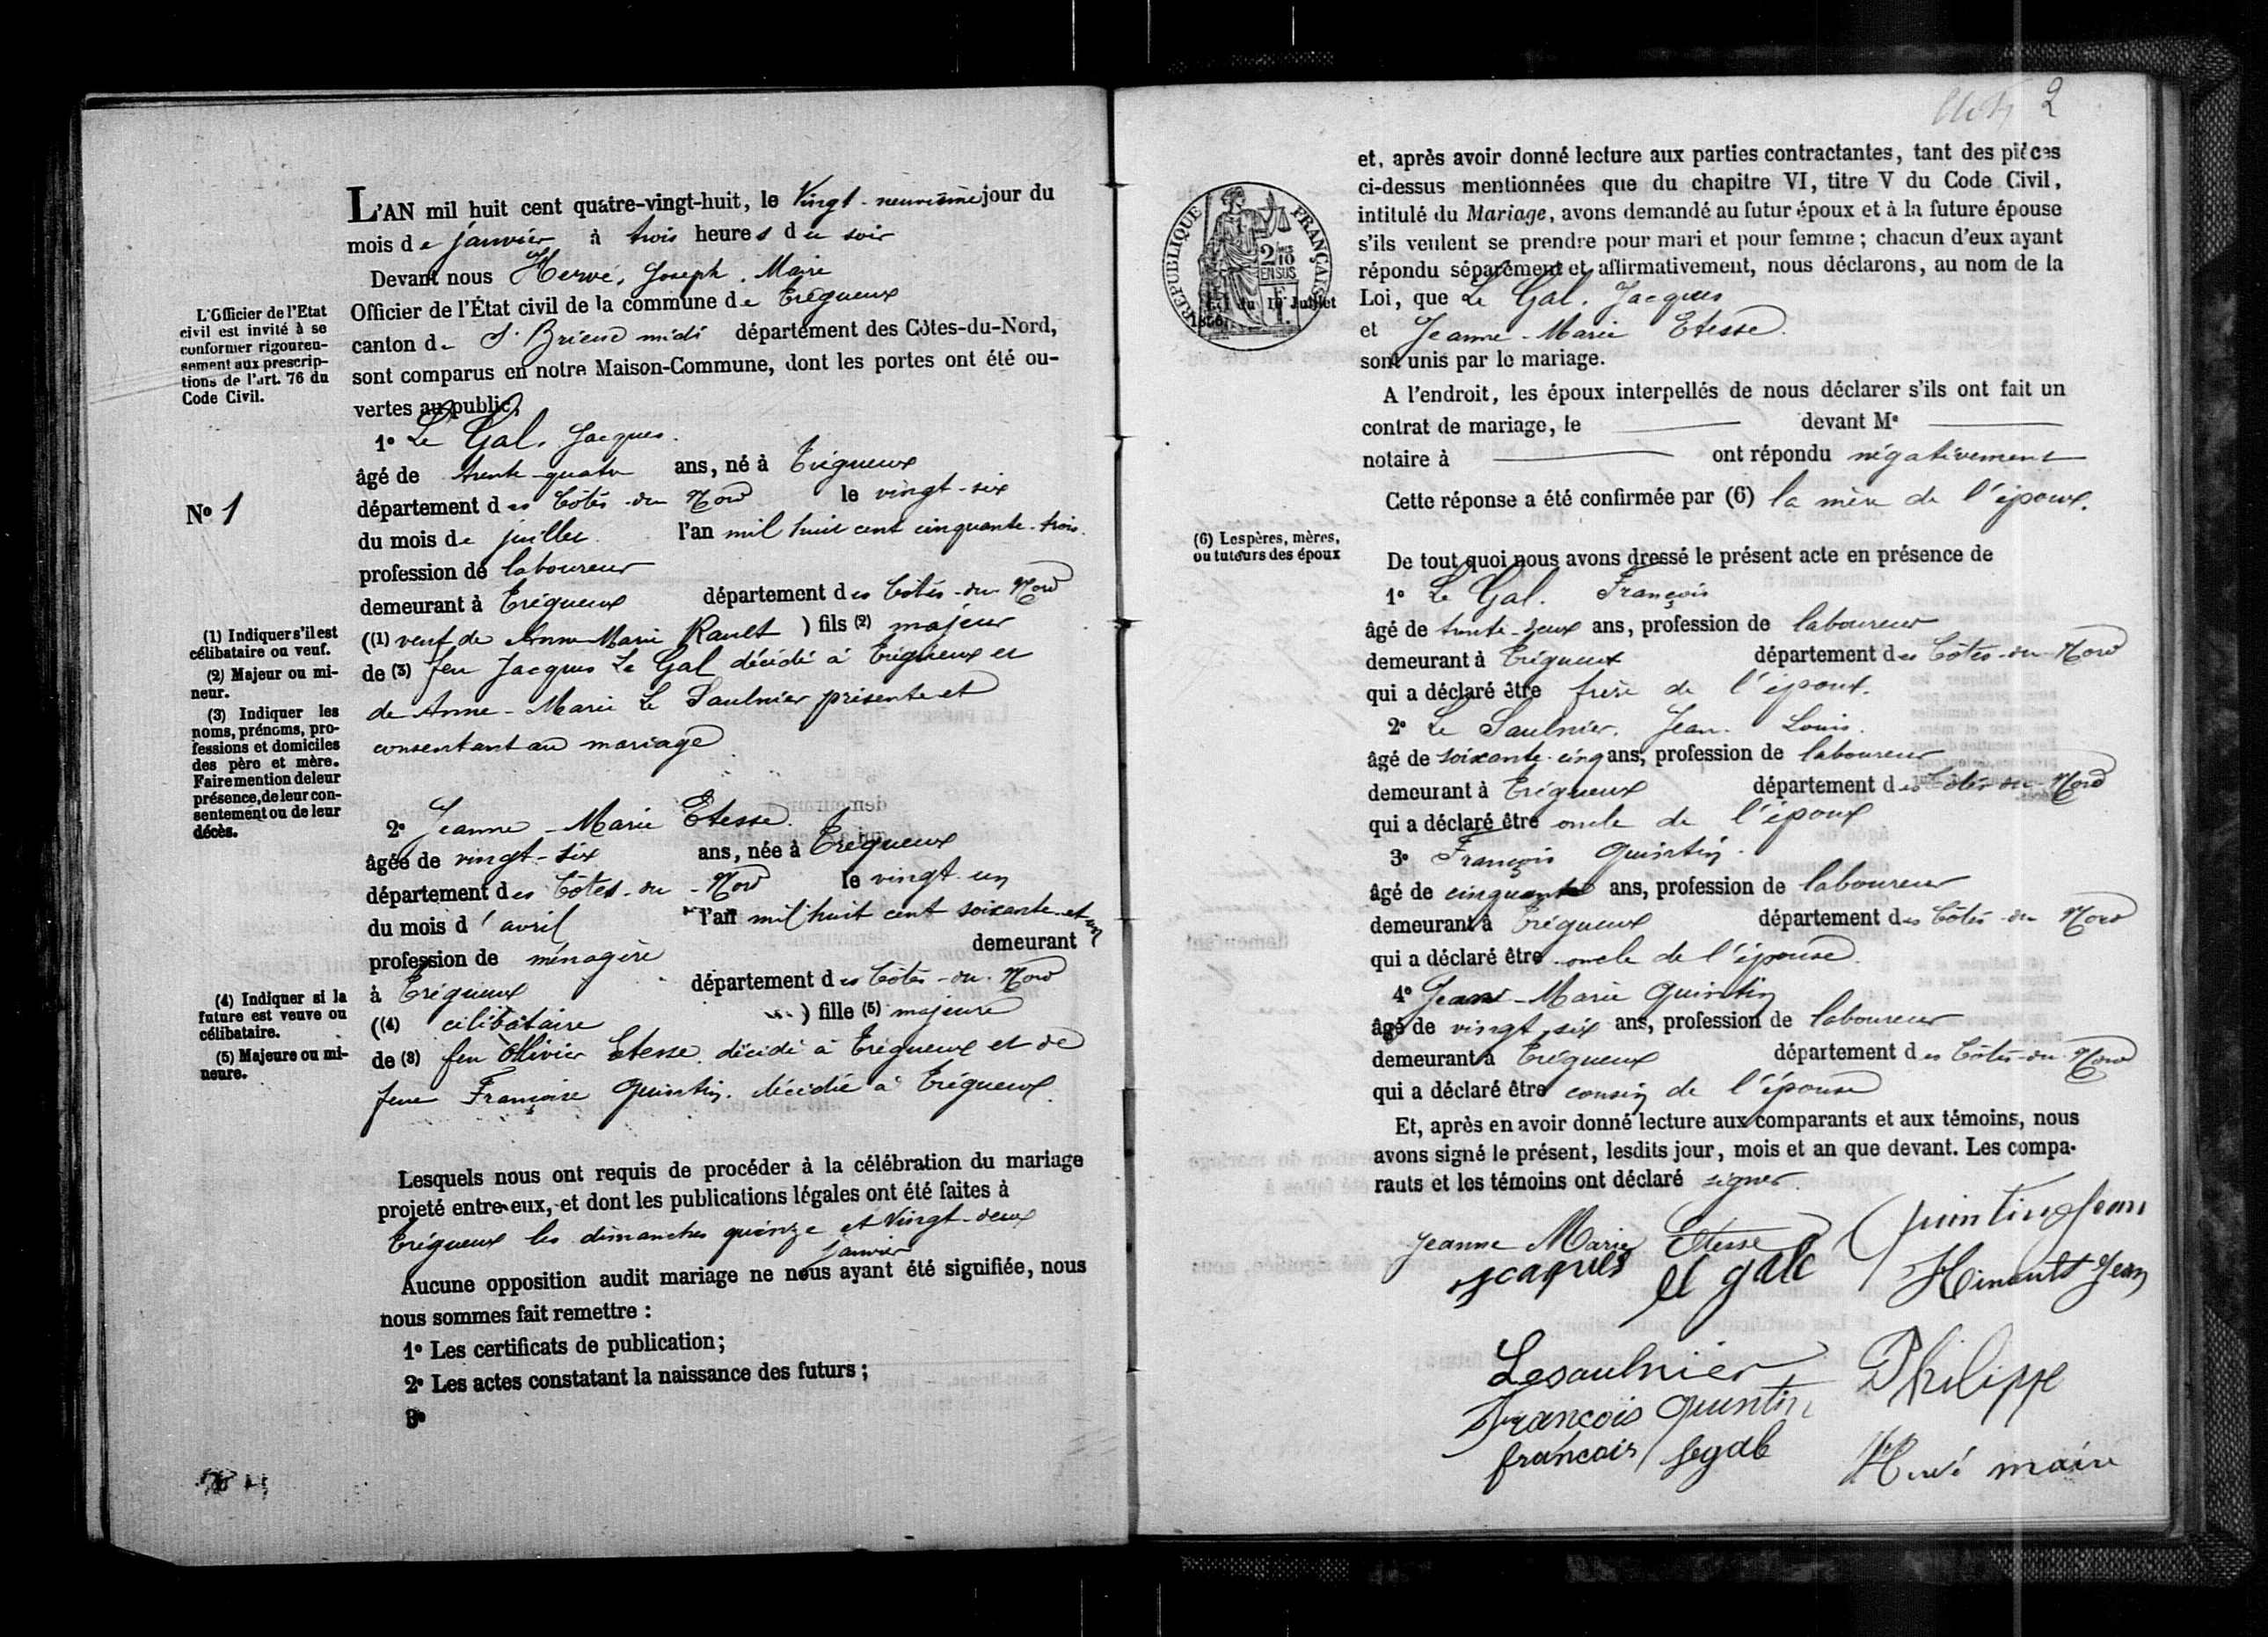 L'AN mil huit cent quatre-vingt-huit, le Vingt-neuvième jour du
mois de janvier à trois heures du soir
Devant nous Hervé, Joseph, Maire
Officier de l'État civil de la commune de Trégueux
canton de St Brieuc midi département des Côtes-du-Nord,
sont comparus en notre Maison-Commune, dont les portes ont été ou-
vertes au public,
L'Officier de l'Etat
civil est invité à se
conformer rigoureu-
sement aux prescrip-
tions de l'art. 76 du
Code Civil.
1° Le Gal, Jacques.
âgé de trente-quatre ans, né à Trégueux
département des Côtes-du Nord le vingt-six
No 1
du mois de juillet l'an mil huit cent cinquante-trois.
profession de laboureur
demeurant à Trégueux département des Côtes-du-Nord
((1) veuf de Anne-Marie Rault ) fils (2) majeur
de (3) feu Jacques Le Gal décédé à Trégueux et
de Anne-Marie Le Saulnier présente et
consentant au mariage
(1) Indiquer s'il est
célibataire ou veuf.
(2) Majeur ou mi-
neur.
(3) Indiquer les
noms, prénoms, pro-
fessions et domiciles
des père et mère.
Faire mention de leur
présence, de leur con-
sentement ou de leur
décès.
2° Jeanne-Marie Etesse.
âgée de vingt-six ans, née à Trégueux
département des Côtes-du-Nord le vingt-un
du mois d'avril l'an mil huit cent soixante-et un
profession de ménagère demeurant
à Trégueux département des Côtes-du-Nord
((4) célibataire ) fille (5) majeure
de (3) feu Ollivier Etesse décédé à Trégueux et de
feue Françoise Quintin, décédée à Trégueux.
(4) Indiquer si la
future est veuve ou
célibataire.
(5) Majeure ou mi-
neure.
Lesquels nous ont requis de procéder à la célébration du mariage
projeté entre eux, et dont les publications légales ont été faites à
Trégueux les dimanches quinze et vingt-deux
janvier
Aucune opposition audit mariage ne nous ayant été signifiée, nous
nous sommes fait remettre :
1° Les certificats de publication;
2° Les actes constatant la naissance des futurs;
3°
2
RÉPUBLIQUE FRANÇAISE
2/10
EN SUS
et, après avoir donné lecture aux parties contractantes, tant des pièces
ci-dessus mentionnées que du chapitre VI, titre V du Code Civil,
intitulé du Mariage, avons demandé au futur époux et à la future épouse
s'ils veulent se prendre pour mari et pour femme; chacun d'eux ayant
répondu séparément et affirmativement, nous déclarons, au nom de la
Loi, que Le Gal, Jacques
et Jeanne-Marie Etesse.
sont unis par le mariage.
A l'endroit, les époux interpellés de nous déclarer s'ils ont fait un
contrat de mariage, le devant Me
notaire à ont répondu négativement
Cette réponse a été confirmée par (6) la mère de l'époux.
(6) Les pères, mères,
ou tuteurs des époux
De tout quoi nous avons dressé le présent acte en présence de
1° Le Gal. François
âgé de trente-deux ans, profession de laboureur
demeurant à Trégueux département des Côtes-du-Nord
qui a déclaré être frère de l'époux.
2° Le Saulnier, Jean-Louis.
âgé de soixante-cinq ans, profession de laboureur
demeurant à Trégueux département des Côtes-du-Nord
qui a déclaré être oncle de l'époux
3° François Quintin.
âgé de cinquante ans, profession de laboureur
demeurant à Trégueux département des Côtes-du Nord
qui a déclaré être oncle de l'épouse
4° Jean-Marie Quintin
âgé de vingt-six ans, profession de laboureur
demeurant à Trégueux département des Côtes-du-Nord
qui a déclaré être cousin de l'épouse
Et, après en avoir donné lecture aux comparants et aux témoins, nous
avons signé le présent, lesdits jour, mois et an que devant. Les compa-
rants et les témoins ont déclaré signer.
Jeanne Marie Etesse Quintin Jean
jcaques el gale Hinault Jean
Lesaulnier Philippe
François Quintin
françois legalb Hervé maire